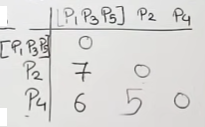 [P₁P₃P₅] P₂ P₄
[P₁P₃P₅] 0
P₂ 7 0
P₄ 6 5 0